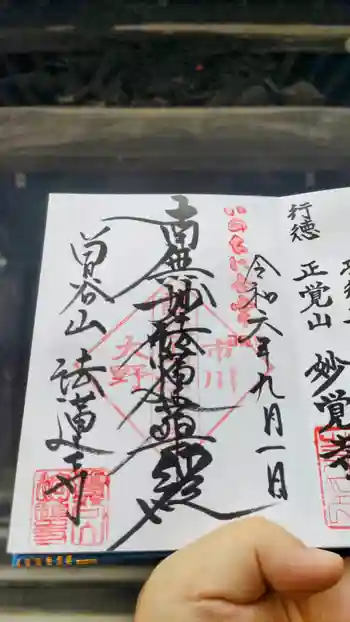 行徳
正覚山
妙覚寺
いのちに合掌
令和六年九月一日
南無妙法蓮華経
市川
大野
曽谷山
法蓮寺